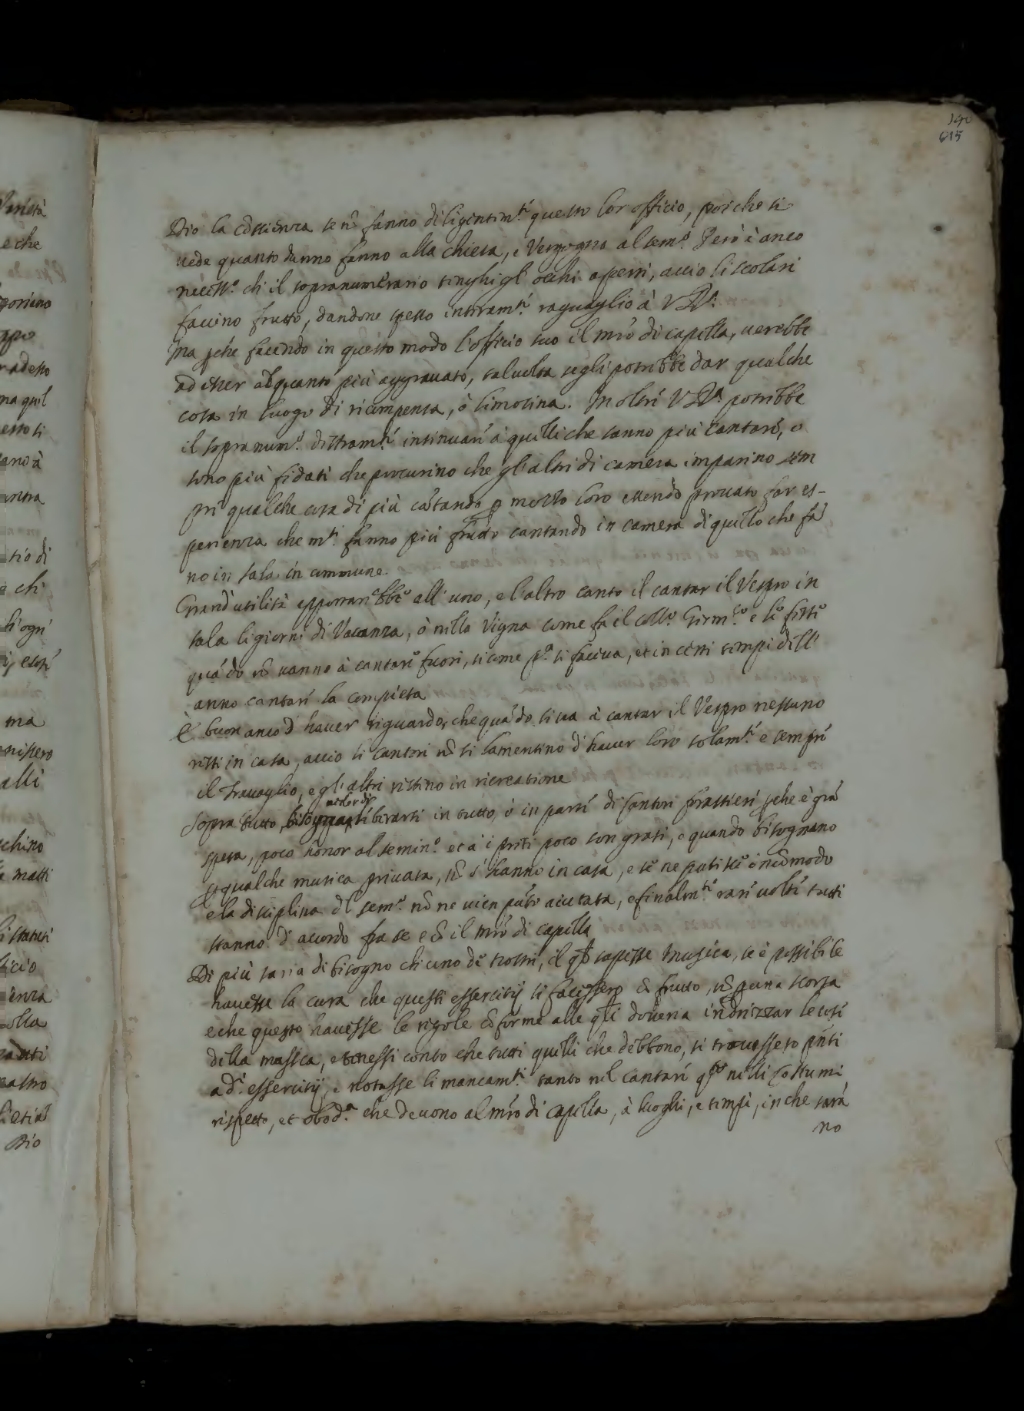 140
615
Dio la cōscienza se nō fanno diligentem.te questo lor officio, poiche si
vede quanto danno fanno alla chiesa, e Vergogna al sem.o Però è anco
necess.o ch'il sopranumerario tenghi gl'occhi aperti, accio li scolari
faccino frutto, dandone spesso interam.te raguaglio à V.R.a
Ma ꝑche facendo in questo modo l'officio suo il mrō di capella, verebbe
ad esser alquanto più aggravato, talvolta segli potrebbe dar qualche
cosa in luogo di ricompensa, ò limosina. Inoltre V.R.a potrebbe
il sopranum.o destram.te insinuare à quelli che sanno più cantare, o
sono più fidati che procurino che gl'altri di camera imparino sem
pre qualche cosa di più cātando ꝑ mezzo loro essendo provato ꝑ es-
perienza che m.ti fanno più frutto cantando in camera di quello che fā
no in sala in commune.
Grand'utilità apportarebbe all'uno, e l'altro canto il cantar il Vespro in
sala li giorni di Vacanza, ò nella Vigna come fa il coll.o Germ.co e le feste
quādo nō vanno à cantare fuori, sicome p.a si faceva, et in certi tempi dell'
anno cantare la compieta
E' buon anco d'haver riguardo, che quādo si va à cantar il Vespro nessuno
resti in casa, accio li cantori nō si lamentino d'haver loro solam.te e sempre
il travaglio, e gl'altri restino in ricreatione
Sopra tutto, bisogna liberarsi in tutto, ò in parte di cantori forastieri ꝑche è grā
spesa, poco honor al semin.o et à i preti poco son grati, e quando bisognano
ꝑ qualche musica privata, nō s'hanno in casa, e se ne patisce incōmodo
e la disciplina del sem.o nō ne vien pūto aiutata, e finalm.te rare volte tutti
stanno d'accordo fra se e cō il mrō di capella
Di più saria di bisogno ch'uno de nostri, il qle sapesse Musica, se è possibile
havesse la cura che questi essercitij si facessero cō frutto, nō pura scorza
e che questo havesse le regole cōforme alle qli doveria indrizzar le cose
della musica, e tenesse conto che tutti quelli che debbono, si trovassero pñti
ad essercitij. notasse li mancam.ti tanto nel cantare qto nelli costumi
rispetto, et obed.a che devono al mrō di capella, à luoghi, e tempi, in che sarà
no